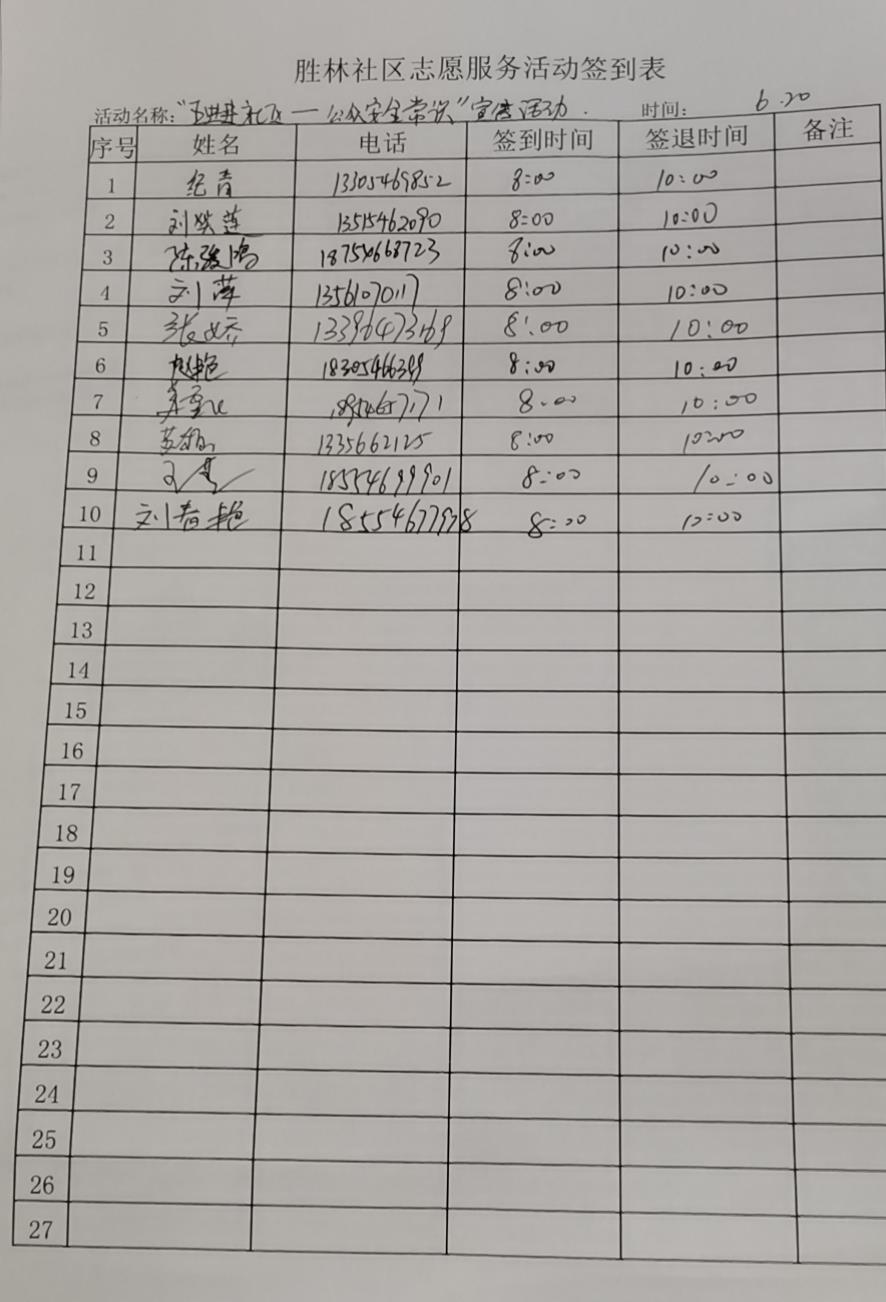 胜林社区志愿服务活动签到表
活动名称:"五进进社区一公众安全常识"宣传活动. 时间: 6.20
序号 姓名 电话 签到时间 签退时间 备注
1 纪青 13305469852 8:00 10:00
2 刘 莲 13515462090 8:00 10:00
3 陈 鸿 8:00 10:00
4 刘萍 8:00 10:00
5 张娇 8:00 10:00
6 艳 18305466399 8:00 10:00
7 8:00 10:00
8 1335662125 8:00 10:00
9 18554699901 8:00 10:00
10 刘春艳 18554677978 8:00 10:00
11
12
13
14
15
16
17
18
19
20
21
22
23
24
25
26
27